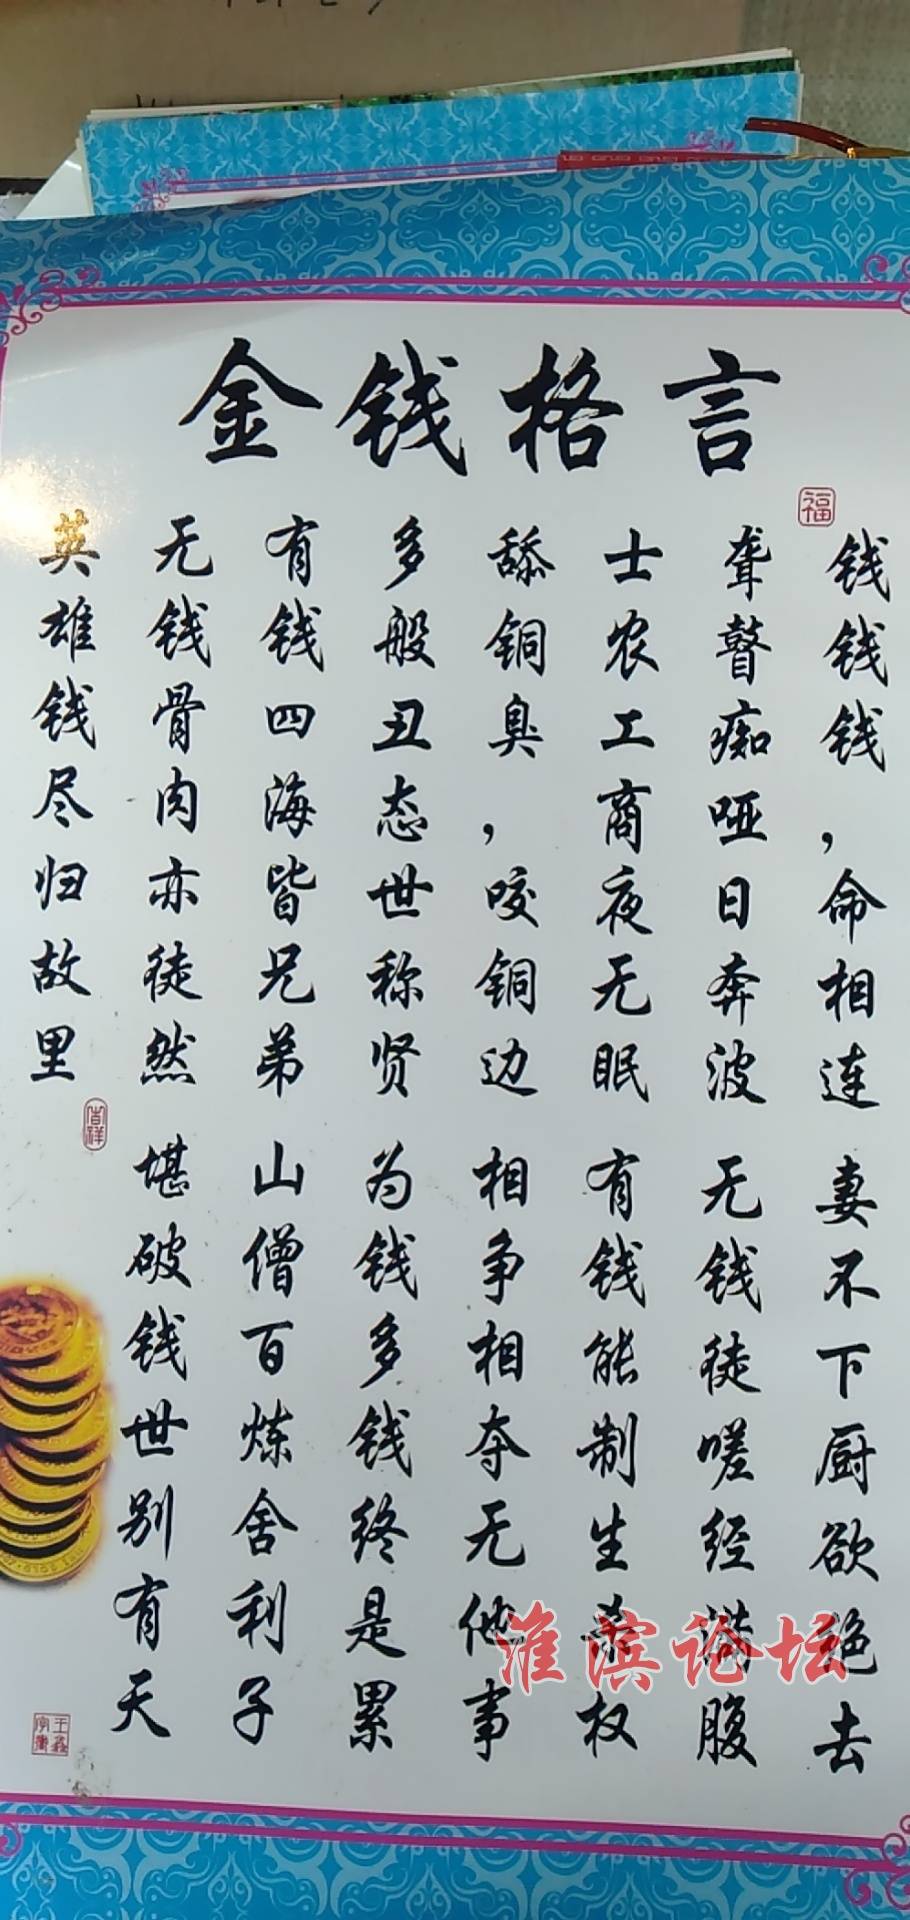 金钱格言
福
钱钱钱，命相连 妻不下厨欲绝去
聋瞽痴哑日奔波 无钱徒嗟经满腹
士农工商夜无眠 有钱能制生杀权
舔铜臭，咬铜边 相争相夺无他事
多般丑态世称贤 为钱多钱终是累
有钱四海皆兄弟 山僧百炼舍利子
无钱骨肉亦徒然 堪破钱世别有天
英雄钱尽归故里
吉祥
淮滨论坛